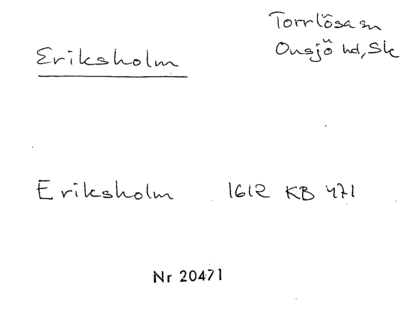 Torrlösa sn
Eriksholm
Onsjö hd, Sk
Eriksholm 1612 KB 471
Nr 20471